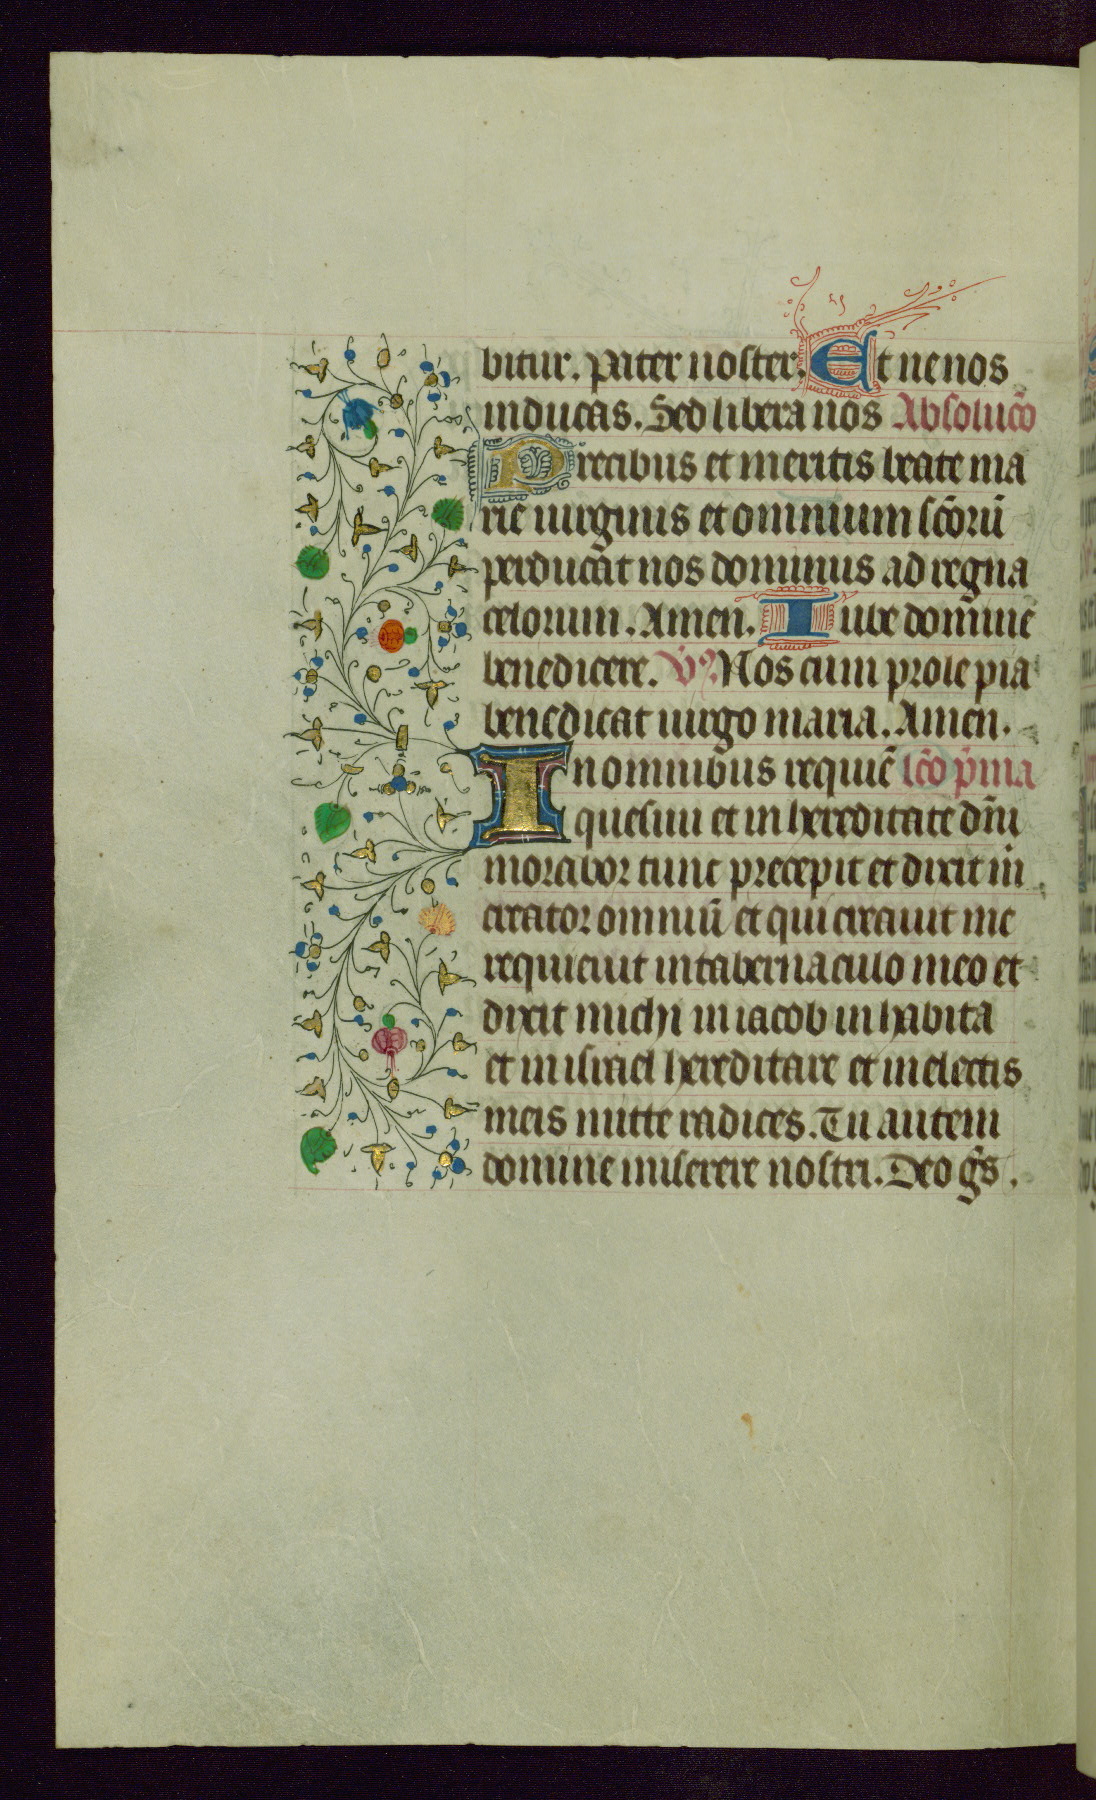 bitur. Pater noster. Et ne nos
inducas. Sed libera nos Absoluc̄o
Precibus et meritis beate ma
rie uirginis et omnium sc̄orū
perducat nos dominus ad regna
celorum. Amen. Iube domine
benedicere. V̊. Nos cum prole pia
benedicat uirgo maria. Amen.
In omnibus requiē lc̄o p̄ma
quesiui et in hereditate dn̄i
morabor tunc precepit et dixit m̄
creator omniū et qui creauit me
requieuit in tabernaculo meo et
dixit michi in iacob in habita
et in israel hereditare et in electis
meis mitte radices. Tu autem
domine miserere nostri. Deo gr̄s.